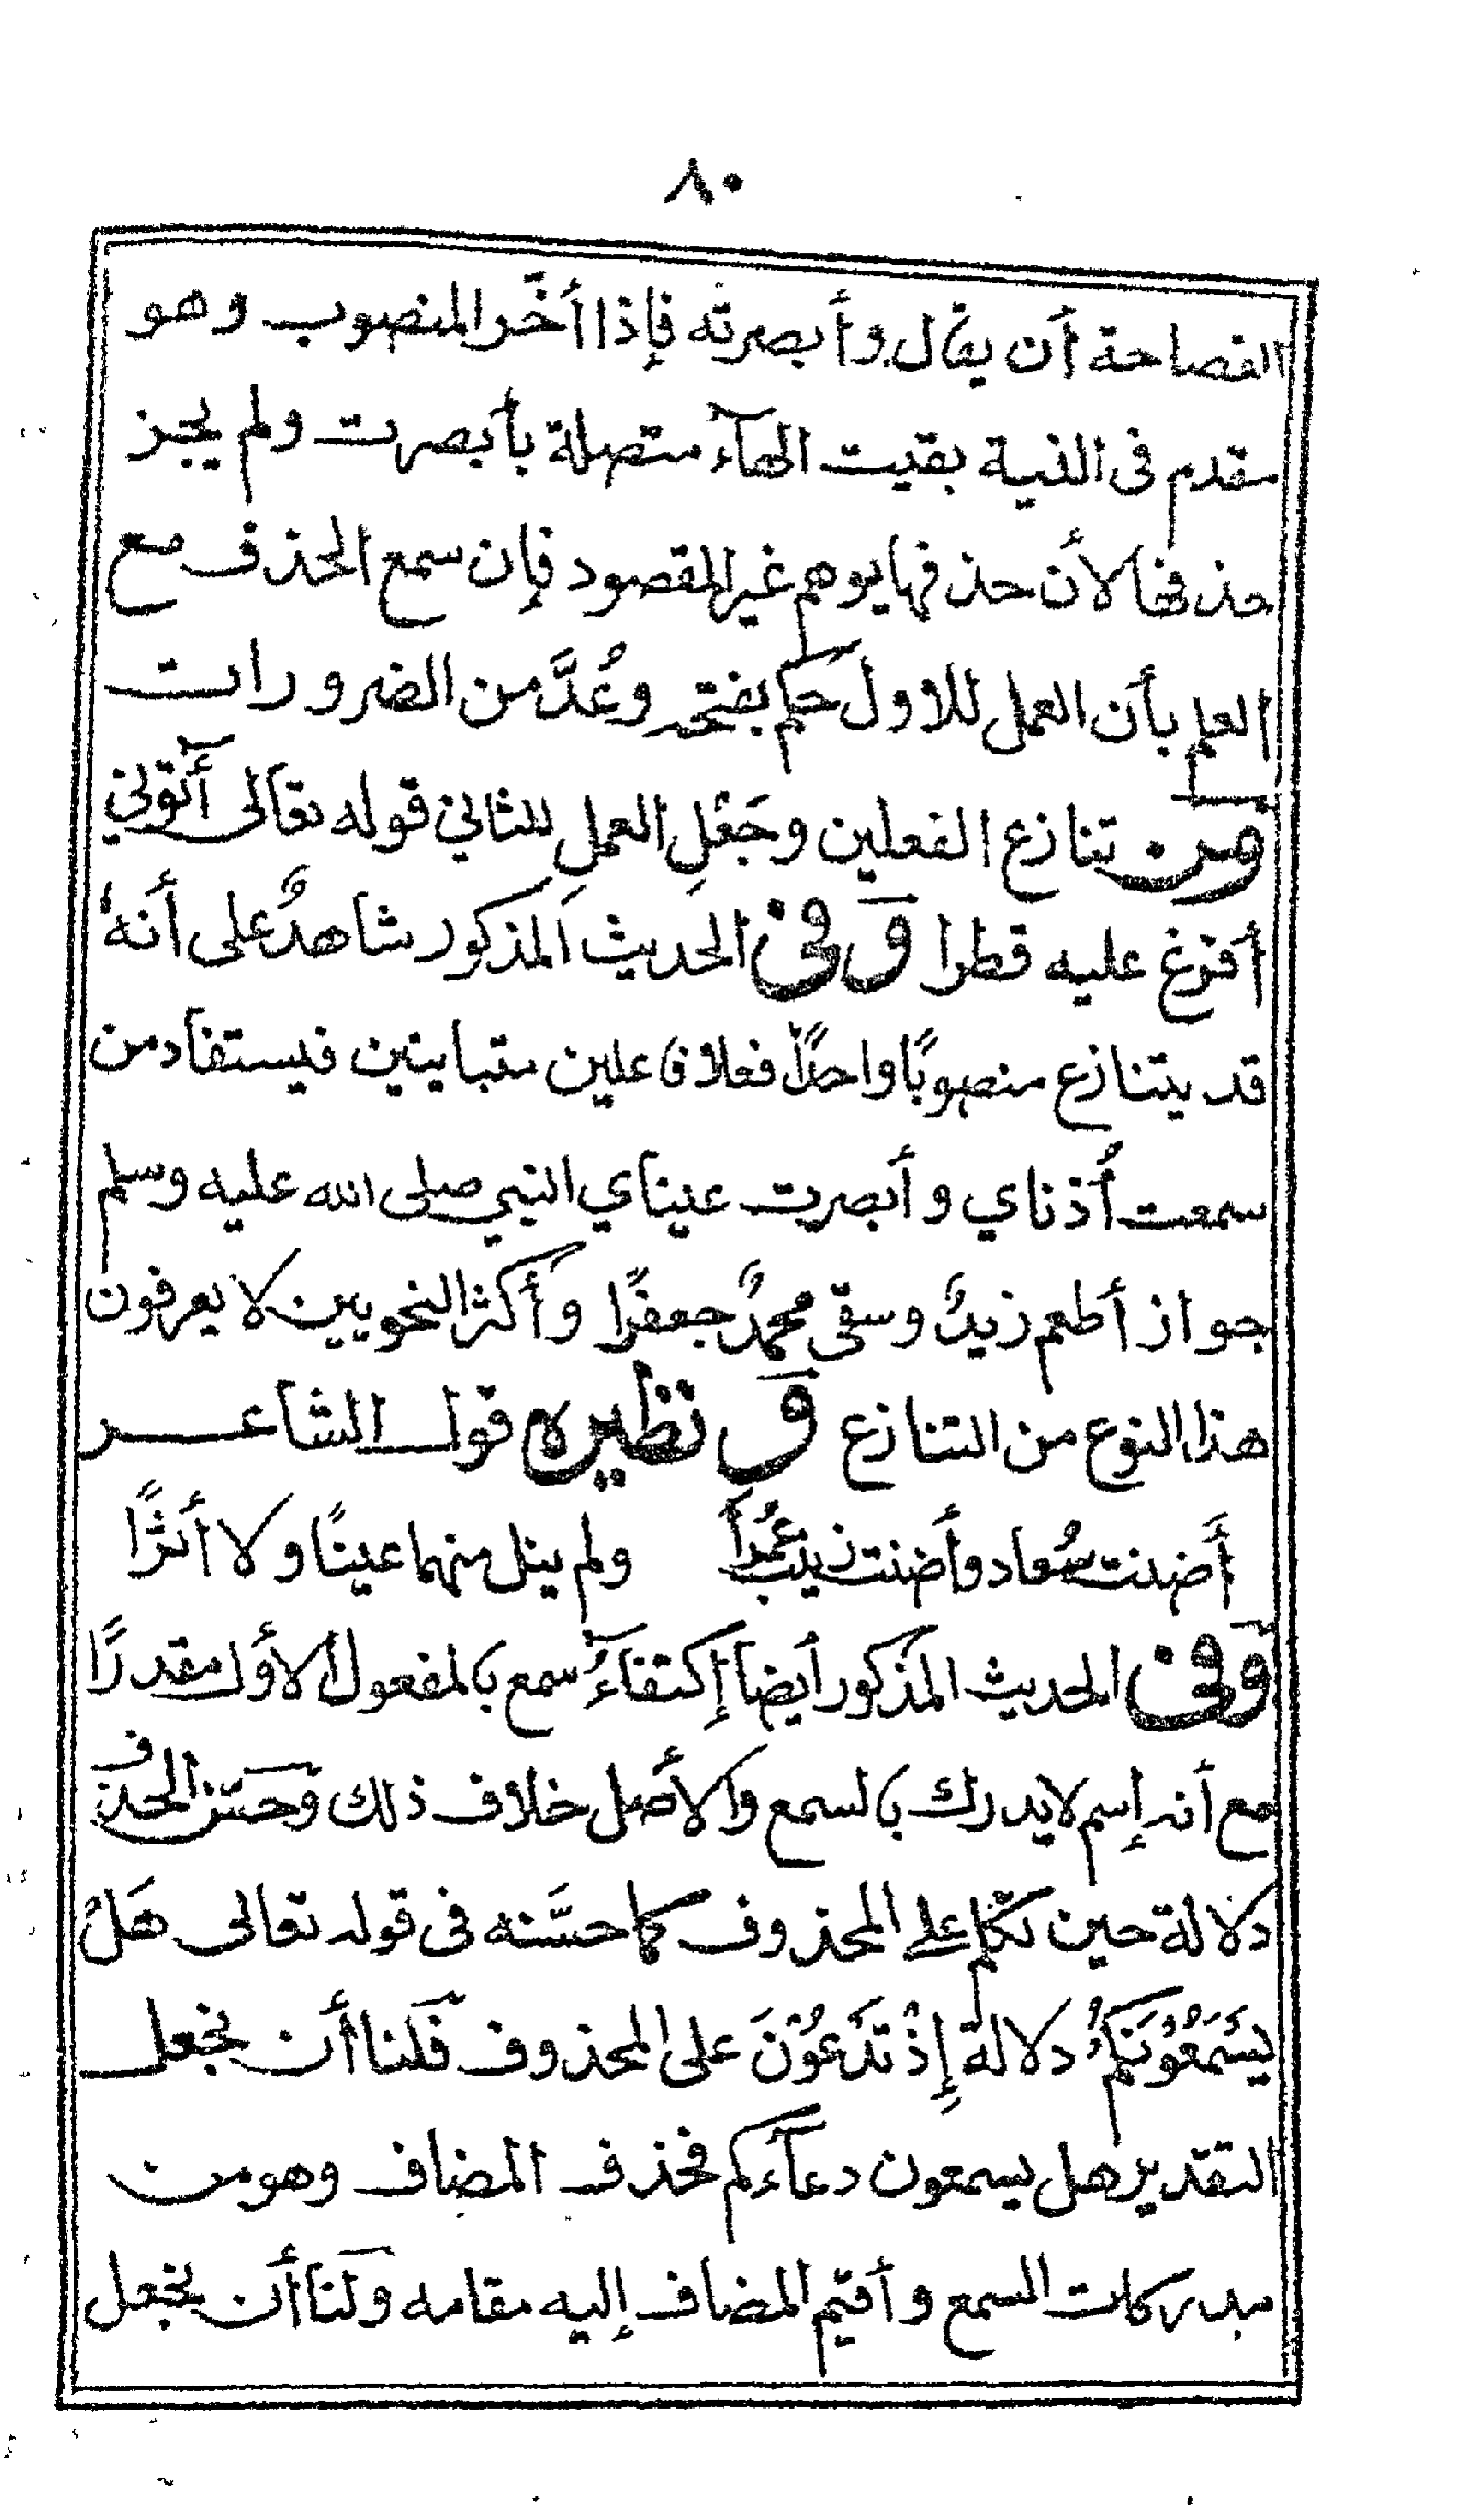 ٨٠
الفصاحة أن يقال وأبصرته فإذا أخّر المنصوب وهو
مقدم فى النية بقيت الهآء متصلة بأبصرت ولم يجز
حذفها لأن حذفها يوهم غير المقصود فإن سمع الحذف مع
العلم بأن العمل للاول حكم بفتحه وعُدَّ من الضرورات
ومن تنازع الفعلين وجَعْلِ العملِ للثاني قوله تعالى آتوني
أفرغ عليه قطرا وفى الحديث المذكور شاهدٌ على أنهُ
قد يتنازع منصوبًا واحدًا فعلا فاعلين متباينين فيستفاد من
سمعت أُذناي وأبصرت عيناي النبي صلى الله عليه وسلم
جواز أطعم زيدٌ وسقى محمدٌ جعفرًا وأكثر النحويين لا يعرفون
هذا النوع من التنازع ونظيره قول الشاعر
أَضنت سُعاد وأَضنت زينبُ عُمرًا ولم ينل منهما عينًا ولا أثرًا
وفى الحديث المذكور أيضا إكتفآءُ سمع بالمفعول الأول مقدرًا
مع أنه إسم لا يدرك بالسمع والأصل خلاف ذلك وحسّن الحذف
دلالة حين تكلم على المحذوف كما حسَّنه فى قوله تعالى هَلْ
يَسْمَعُوْنَكُمْ دلالة إِذْ تَدْعُوْنَ على المحذوف فلنا أن نجعل
التقدير هل يسمعون دعآءكم فحذف المضاف وهو من
مدركات السمع وأقيم المضاف إليه مقامه ولنا أن نجعل